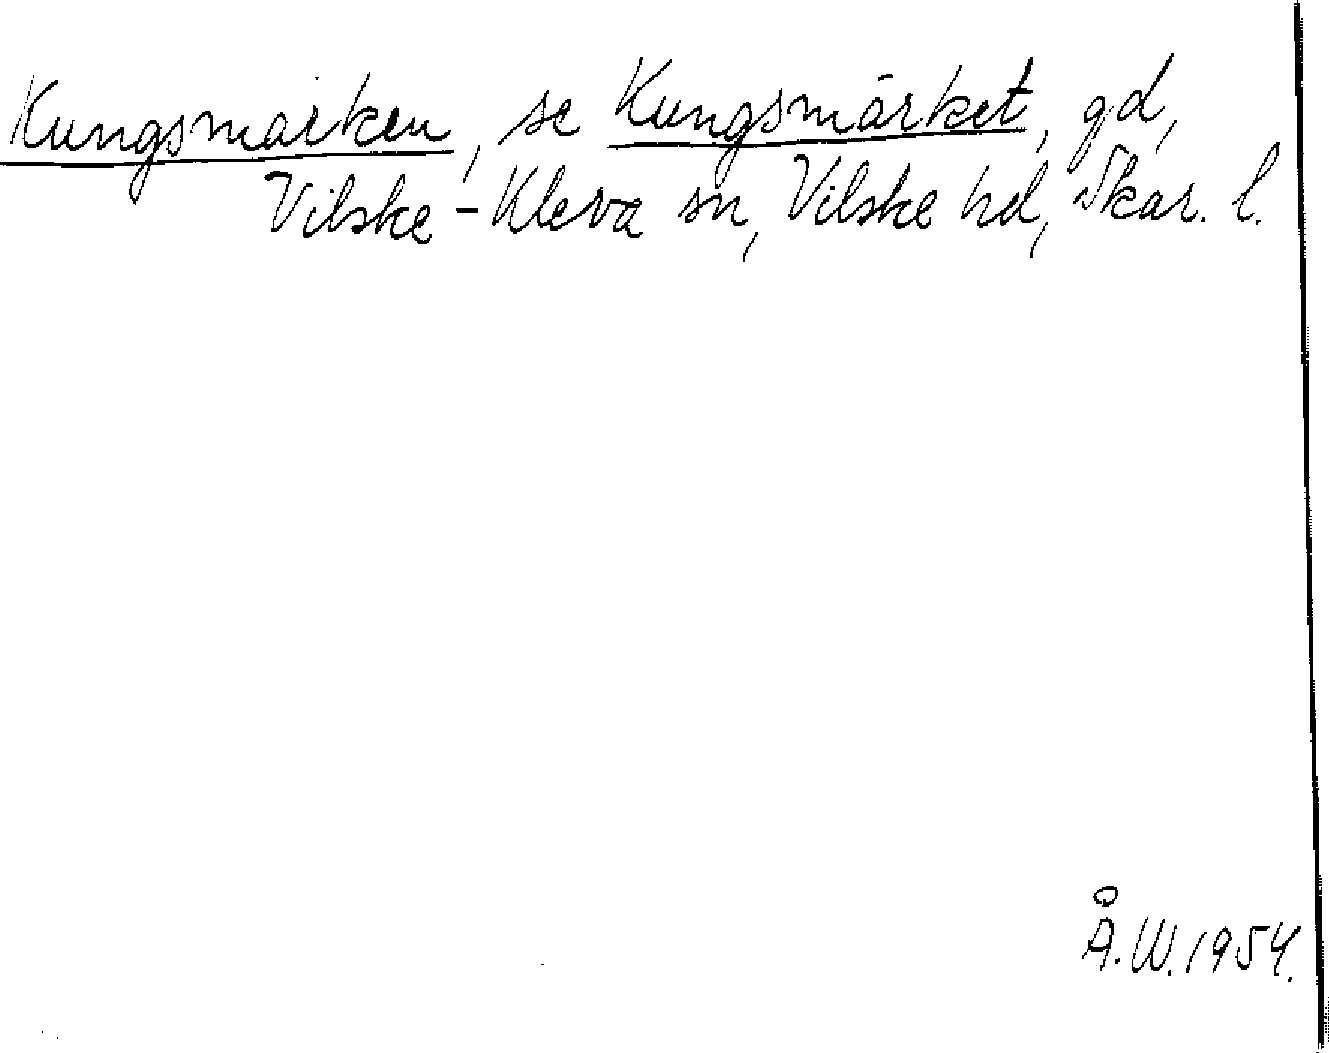 Kungsmärken, se Kungsmärket, gd,
Vilske-Kleva sn, Vilske hd, Skar. l.
Å.W. 1954.